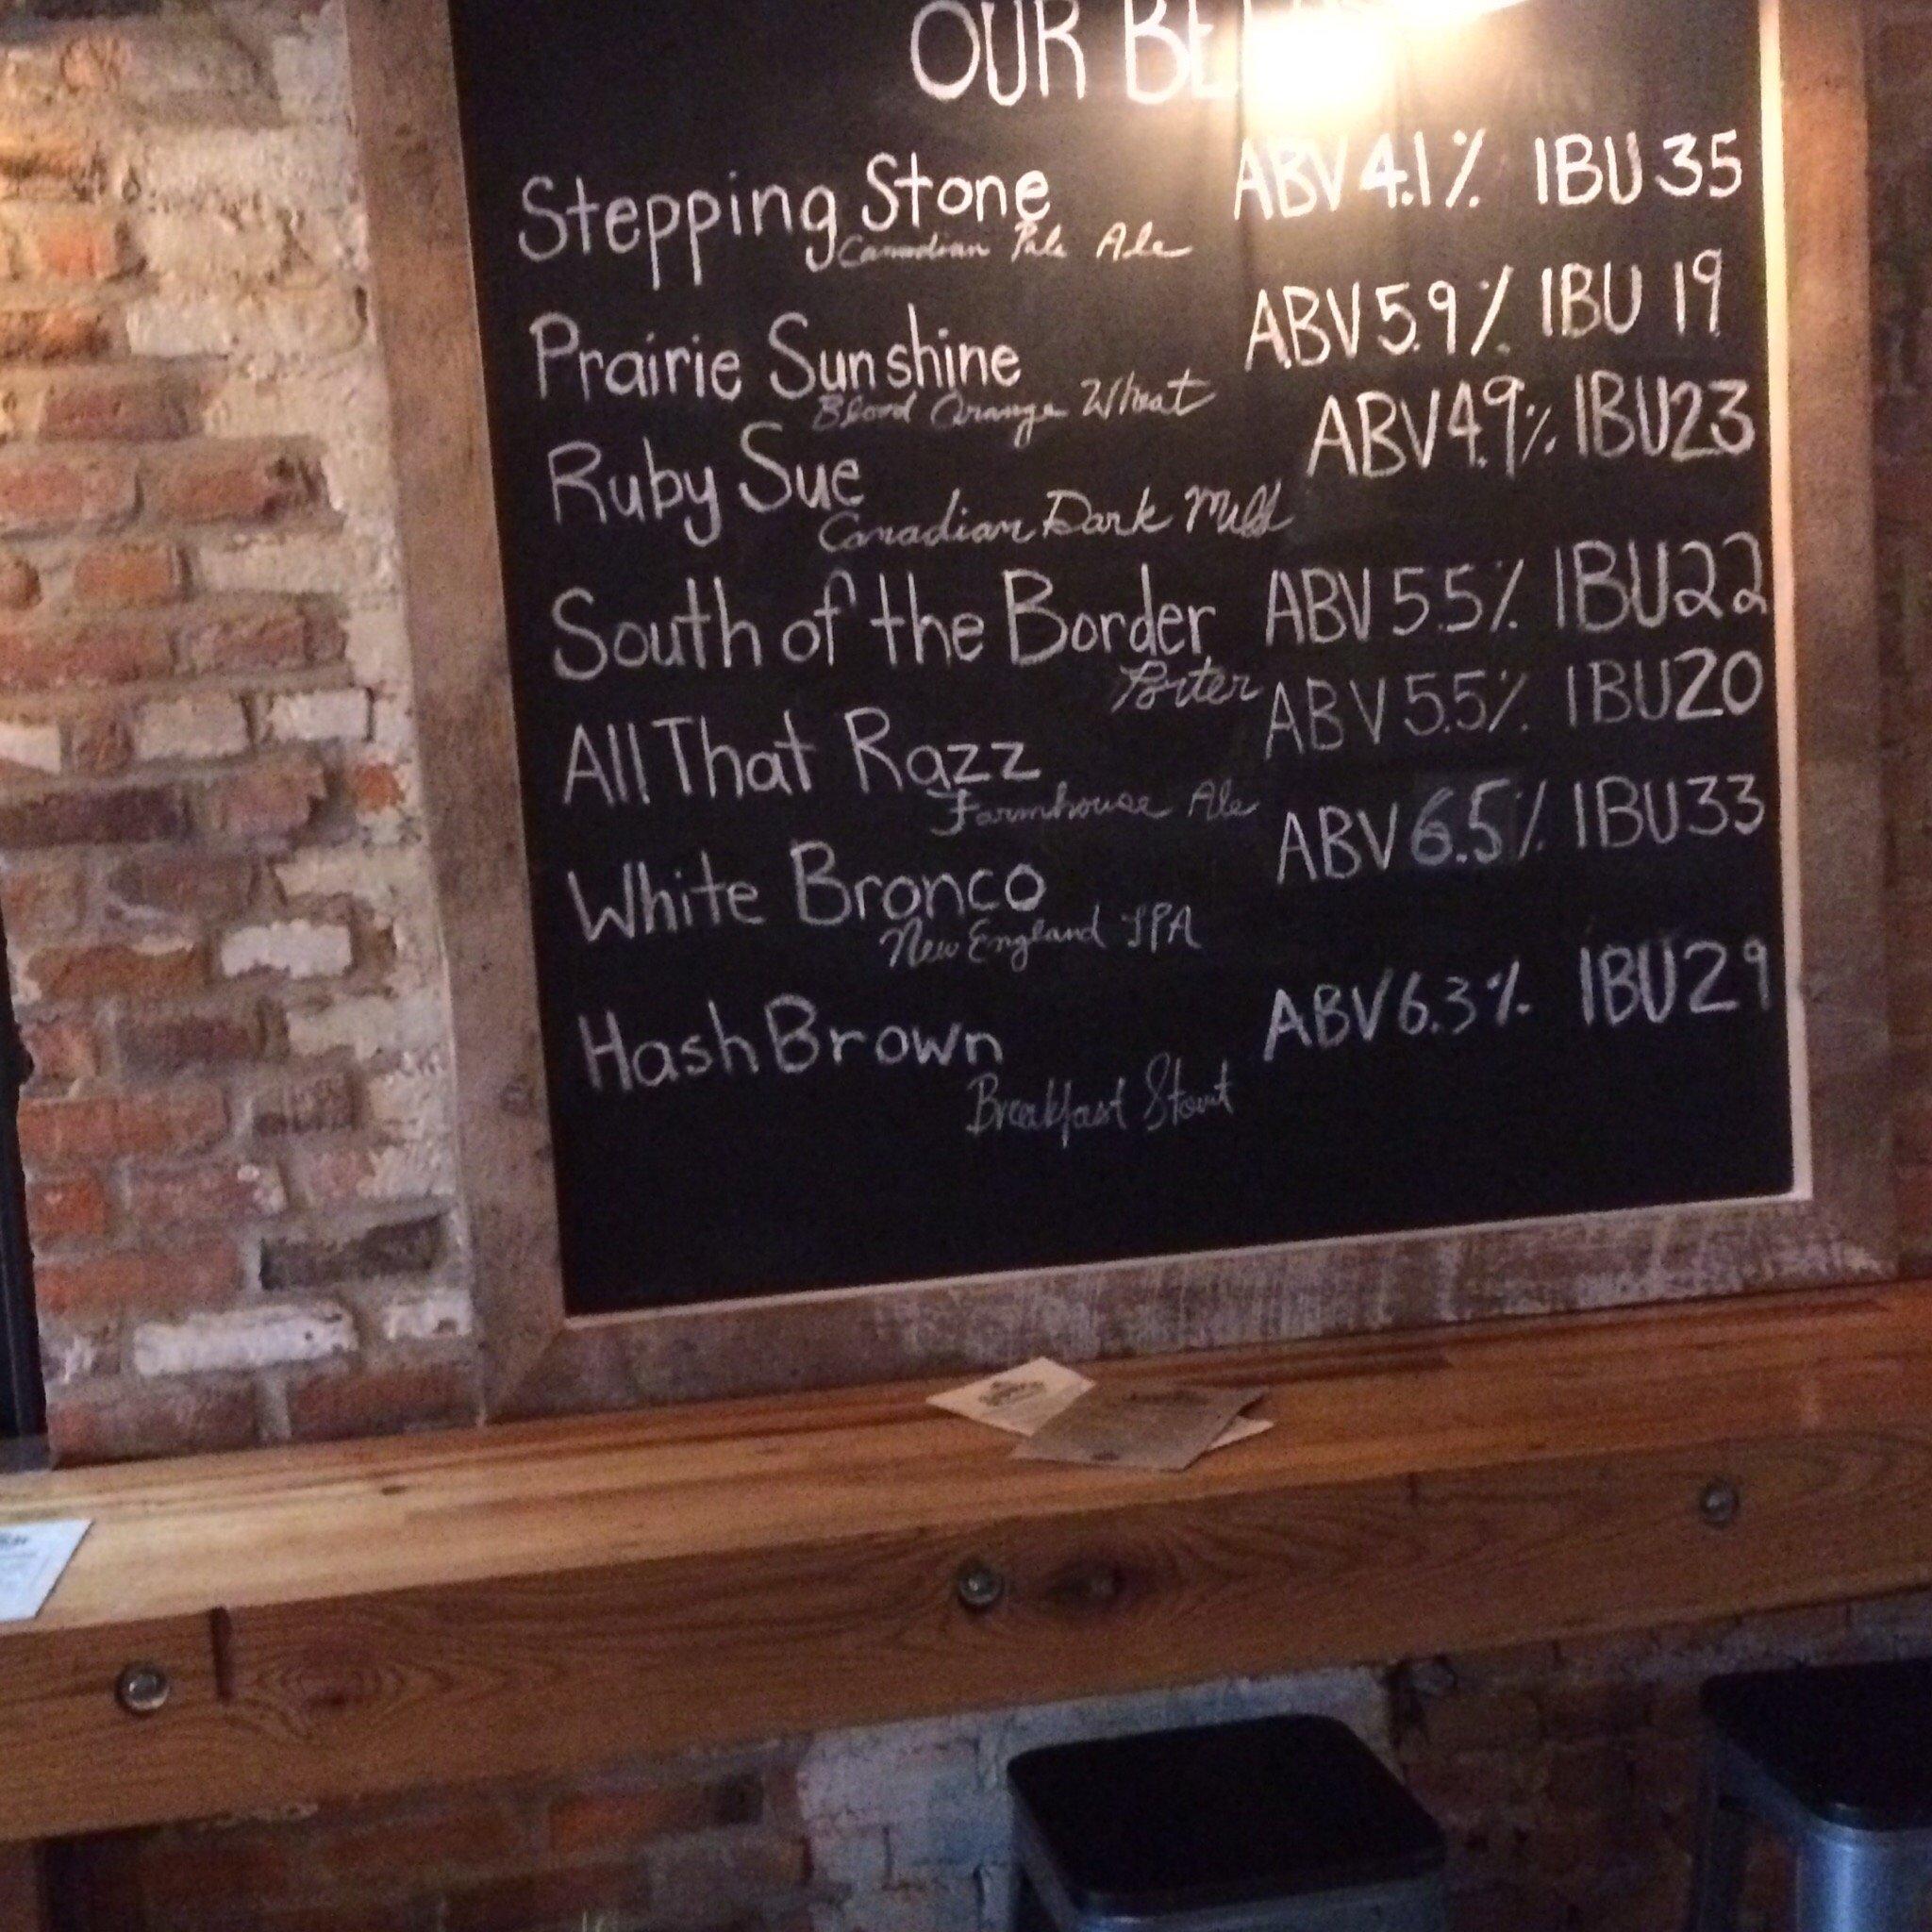 OUR BE
Stepping Stone ABV 4.1% IBU 35
Canadian Pale Ale
Prairie Sunshine ABV 5.9% IBU 19
Blood Orange Wheat
Ruby Sue ABV 4.9% IBU 23
Canadian Dark Mild
South of the Border ABV 5.5% IBU 22
Porter
All That Razz ABV 5.5% IBU 20
Farmhouse Ale
White Bronco ABV 6.5% IBU 33
New England IPA
Hash Brown ABV 6.3% IBU 29
Breakfast Stout